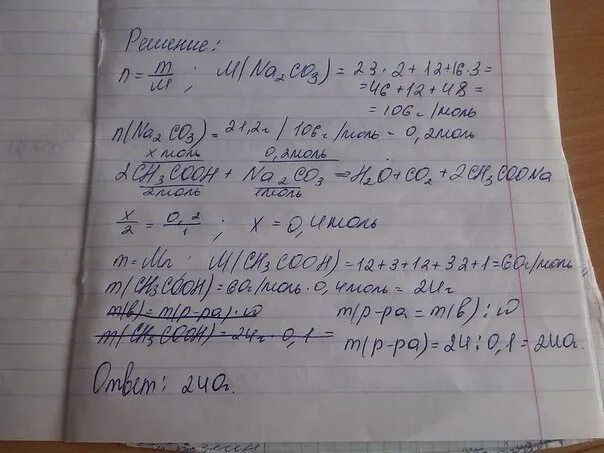 Решение:
n = m/M ; M(Na2CO3) = 23·2+12+16·3 =
= 46+12+48 =
= 106 г/моль
n(Na2CO3) = 21,2г / 106 г/моль = 0,2моль
x моль 0,2моль
2CH3COOH + Na2CO3 = H2O + CO2 + 2CH3COONa
2моль 1моль
x/2 = 0,2/1 ; x = 0,4моль
m = Mn ; M(CH3COOH) = 12+3+12+32+1 = 60г/моль
m(CH3COOH) = 60г/моль · 0,4моль = 24г
m(в) = m(р-ра) · ω m(р-ра = m(в) : ω
m(CH3COOH) = 24г · 0,1 = m(р-ра) = 24 : 0,1 = 240г.
Ответ: 240г.